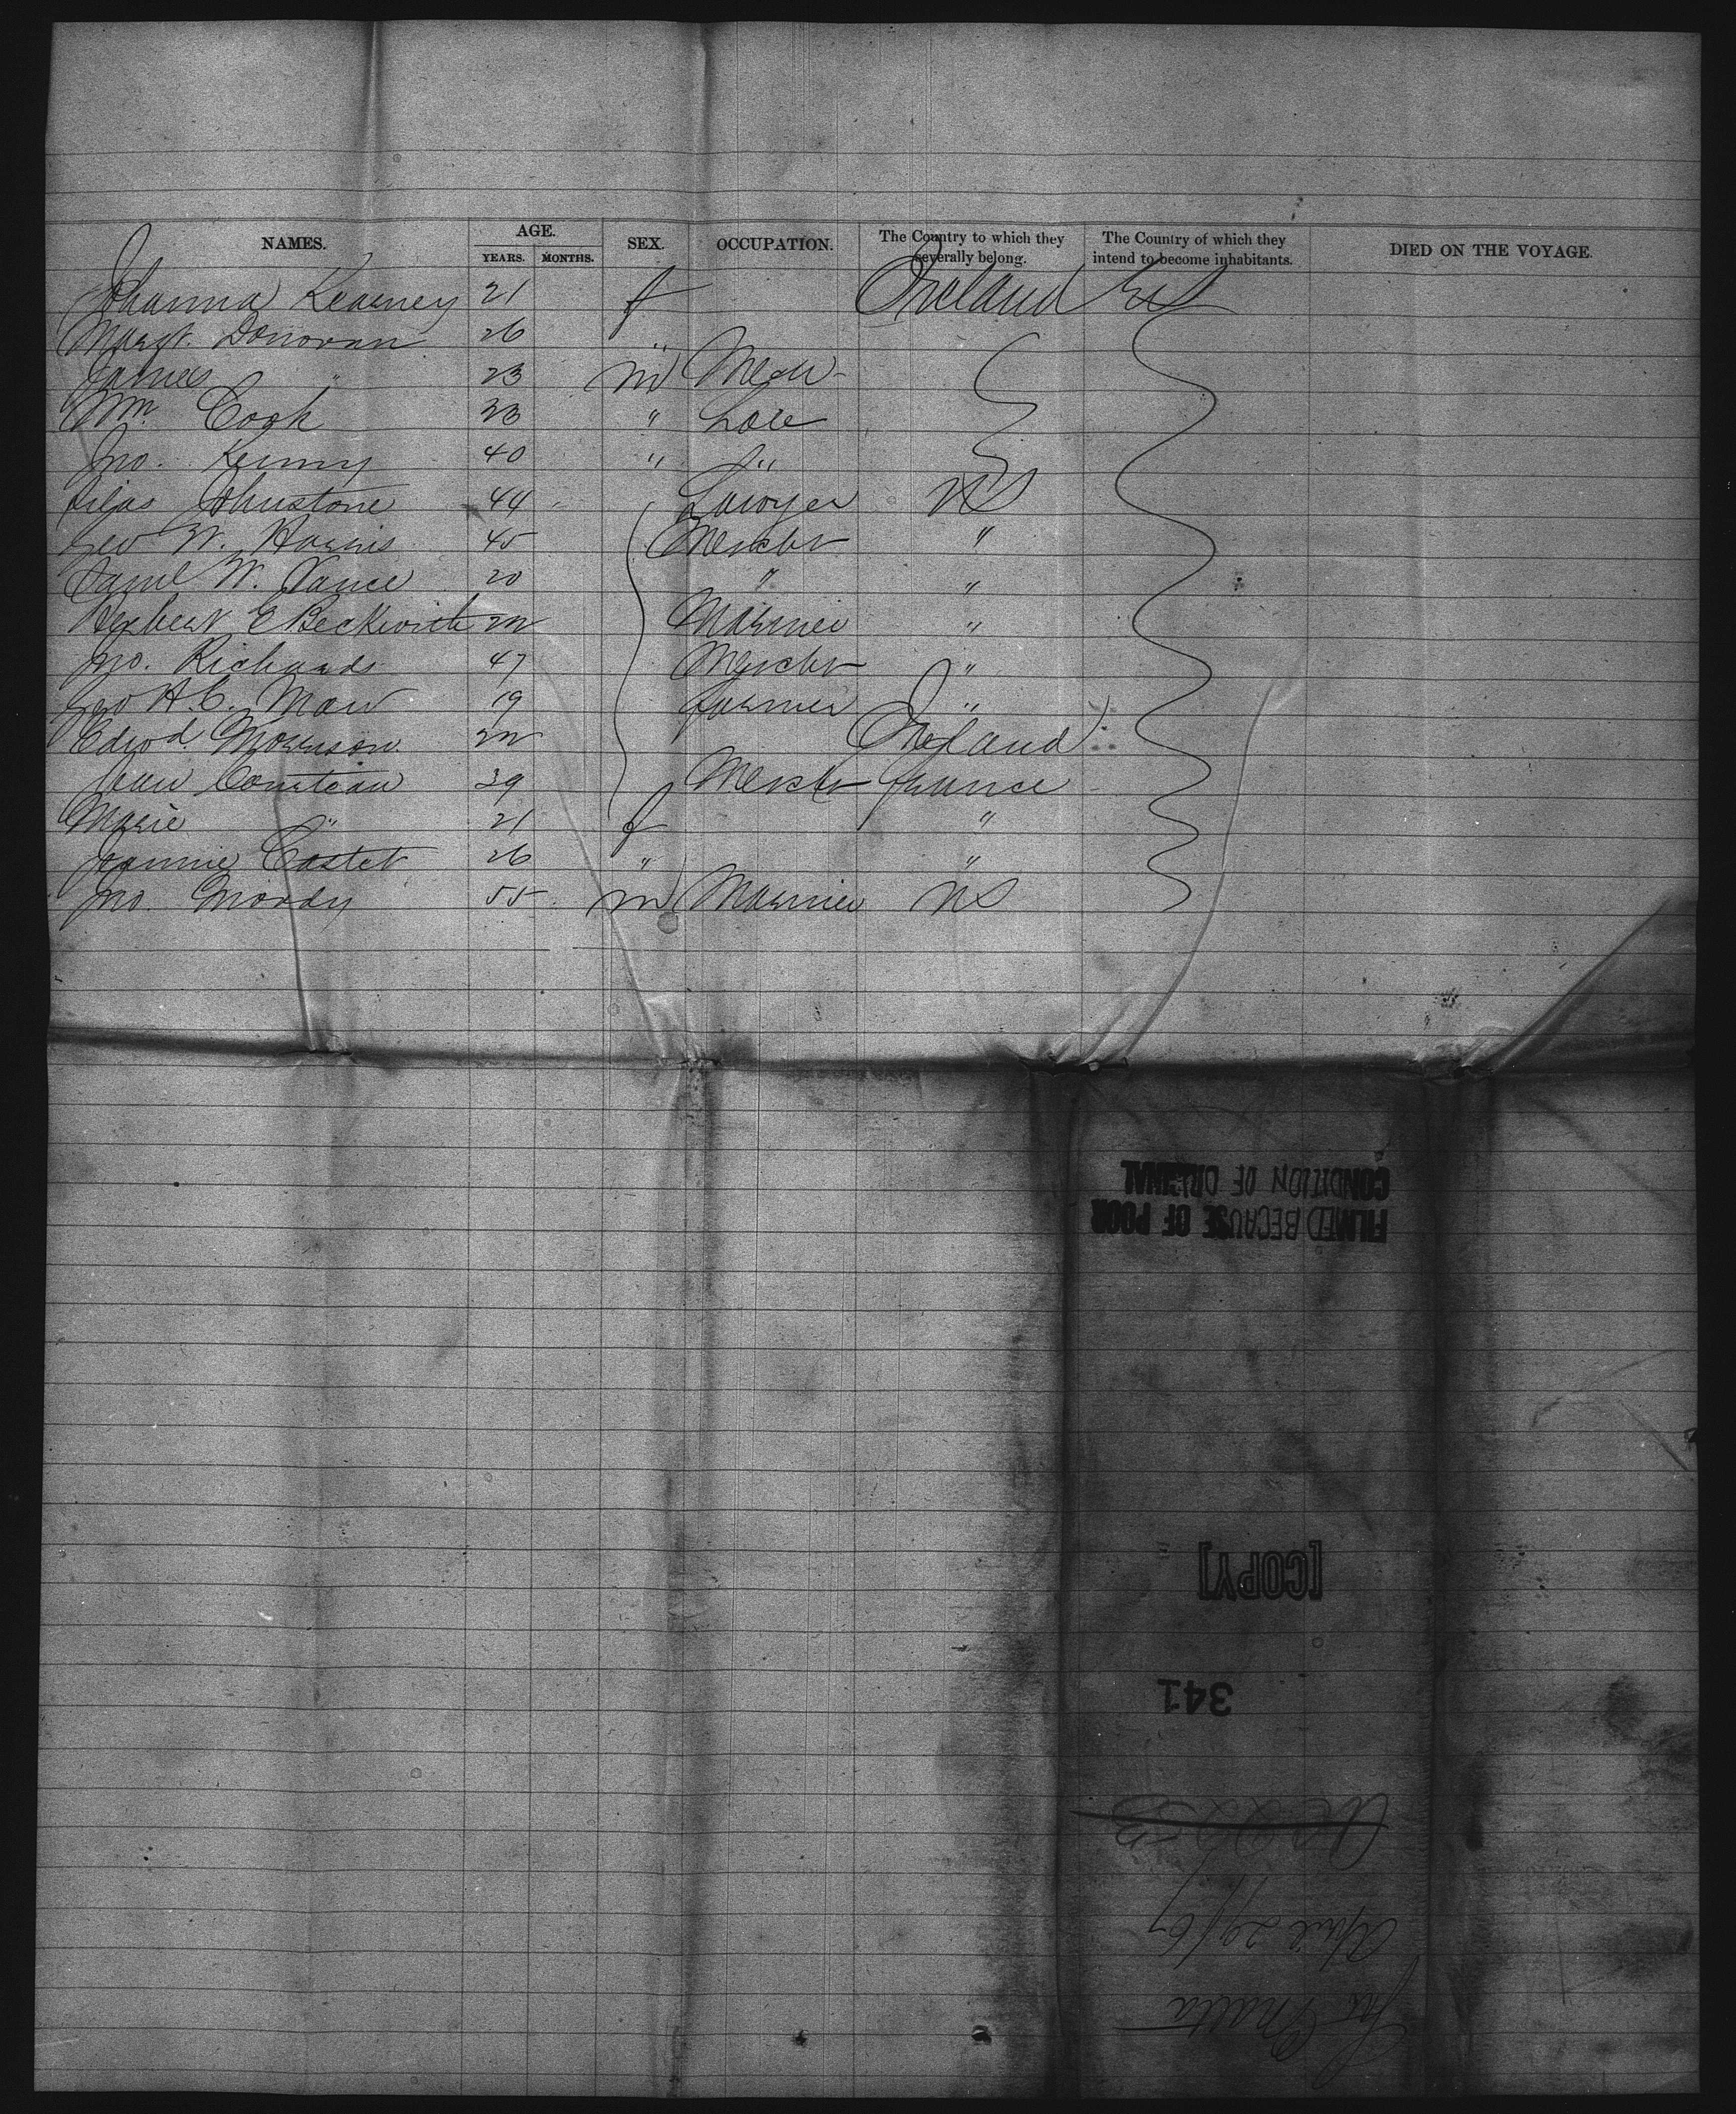 NAMES. AGE. SEX. OCCUPATION. The Country to which they severally belong. The Country of which they intend to become inhabitants. DIED ON THE VOYAGE.
YEARS. MONTHS.
Johanna Kearney 21 f Ireland US
Margt. Donovan 26 "
James " 23 m
Wm. Cook 23 "
Jno. Kenny 40 " "
Silas Johnstone 44 Lawyer NS
Geo W. Harris 45 Mercht "
Saml W. Vance 20 " "
Herbert E Beckwith 22 Mariner "
Jno. Richards 47 Mercht "
Geo H. C. 19 farmer "
Edwd. Morrison 22 Ireland
Jean 39 Mercht france
Marie " 21 f "
Castet 26 " "
Jno. Moody 55 m Mariner NS
FILMED BECAUSE OF POOR
CONDITION OF ORIGINAL
[COPY]
341
April 29/67
Str Malta